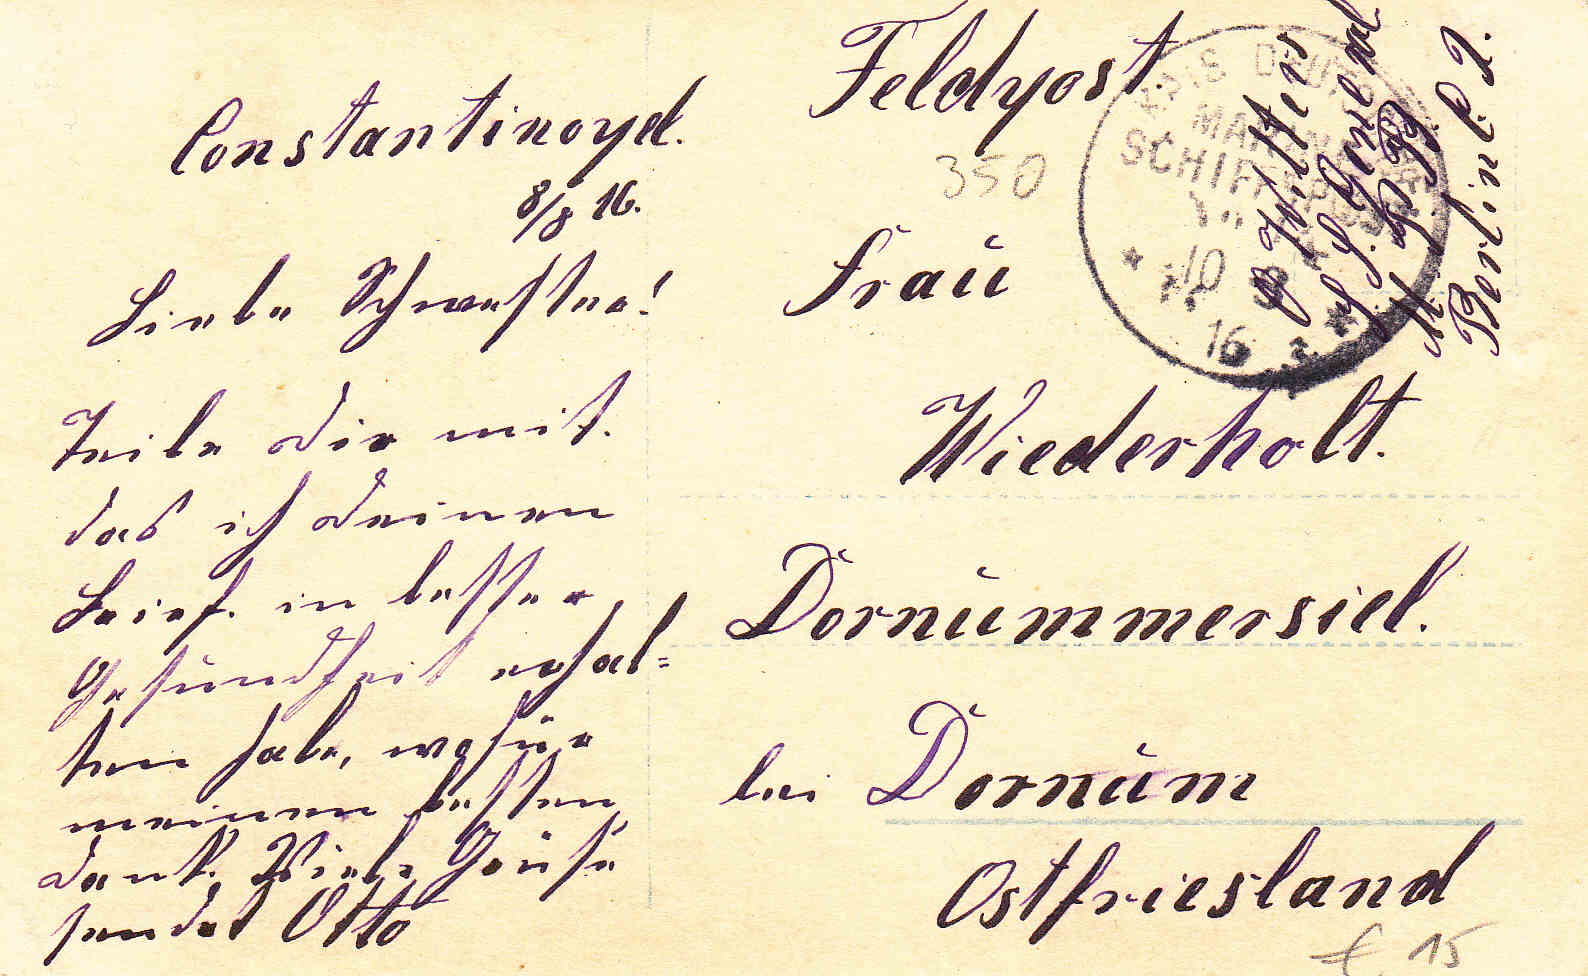 Constantinopel.
8/8 16.
Liebe Schwester!
Teile Dir mit.
das ich Deinen
Brief. in bester
Gesundheit erhal=
ten habe, wofür
meinen besten
Dank. Viele Grüße
sendet Otto
Feldpost.
350
Frau
Wiederholt.
Dornummersiel.
bei Dornum
Ostfriesland
€ 15
KAIS. DEUTSCHE
MARINE
SCHIFFSPOST
10 8
16
Berlin C. 2.